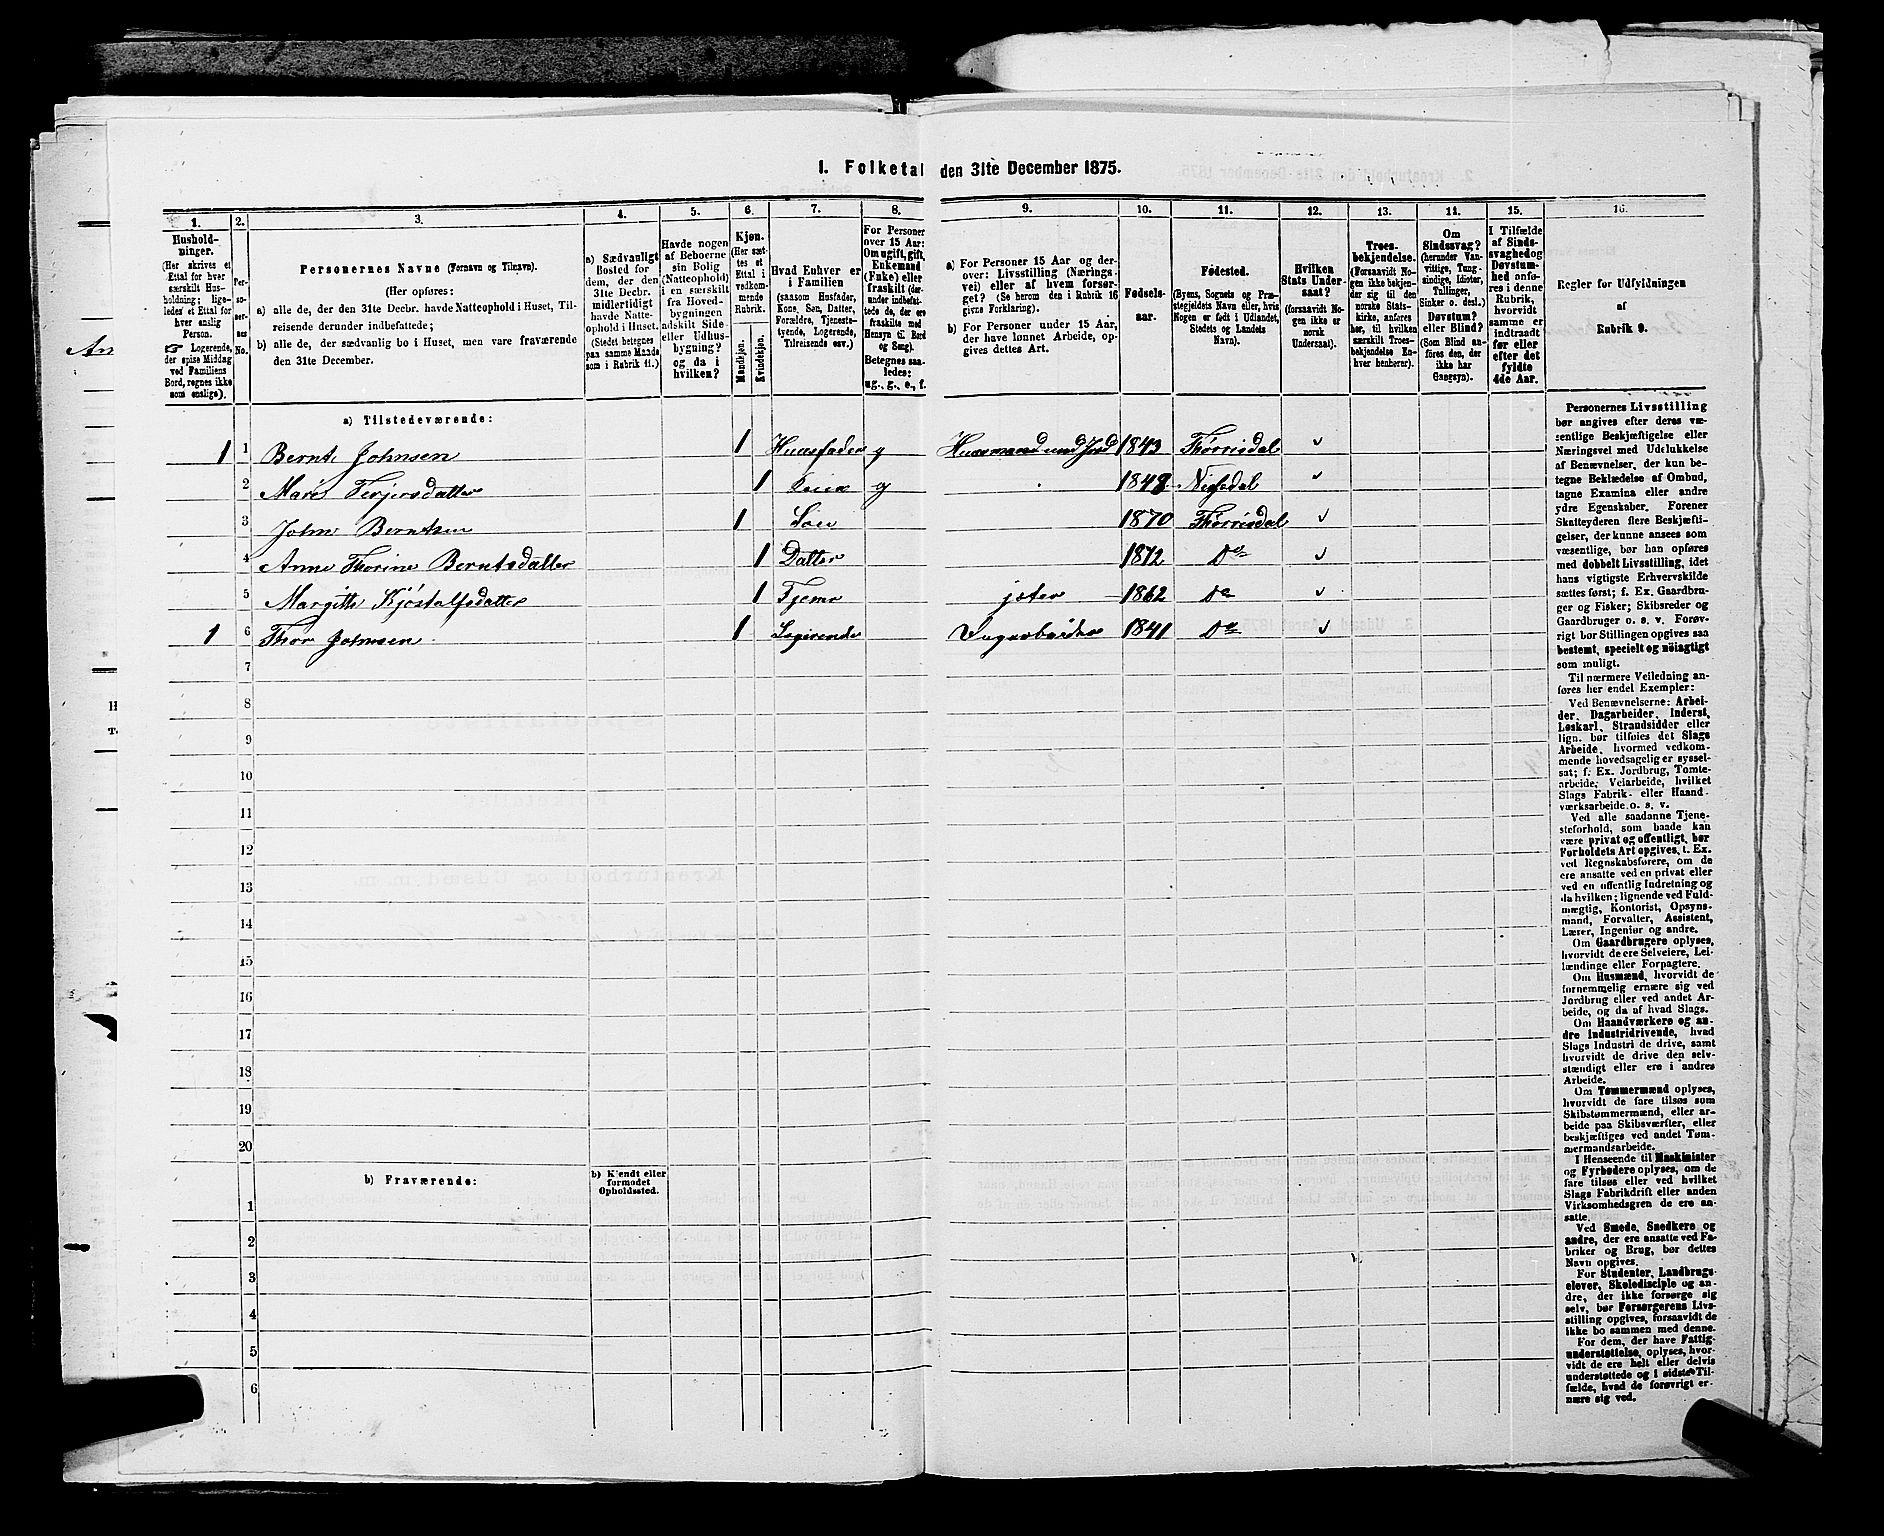 1. Folketal den 31te December 1875.
1. 2. 3. 4. 5. 6. 7. 8. 9. 10. 11. 12. 13. 14. 15. 16.
Hushold-
ninger.
(Her skrives et
Ettal for hver
særskilt Hus-
holdning; lige-
ledes et Ettal for
hver enslig
Person.
☞ Logerende,
der spise Middag
ved Familiens
Bord, regnes ikke
som enslige).
Per-
so-
ner-
nes
No.
Personernes Navne (Fornavn og Tilnavn).
(Her opføres:
a) alle de, der den 31te Decbr. havde Natteophold i Huset, Til-
reisende derunder indbefattede;
b) alle de, der sædvanlig bo i Huset, men vare fraværende
den 31te December.
a) Sædvanligt
Bosted for
dem, der den
31te Decbr.
midlertidigt
havde Natte-
ophold i Huset.
(Stedet betegnes
paa samme Maade
som i Rubrik 11.)
Havde nogen
af Beboerne
sin Bolig
(Natteophold)
i en særskilt
fra Hoved-
bygningen
adskilt Side-
eller Udhus-
bygning?
og da i
hvilken?
Kjøn.
(Her sæt-
tes et
Ettal i
vedkom-
mende
Rubrik.
Mandkjøn.
Kvindekjøn.
Hvad Enhver er
i Familien
(saasom Husfader,
Kone, Søn, Datter,
Forældre, Tjeneste-
tyende, Logerende,
Tilreisende osv.)
For Personer
over 15 Aar:
Om ugift, gift,
Enkemand
(Enke) eller
fraskilt (der-
under indbefat-
tede de, der ere
fraskilte med
Hensyn til Bord
og Seng).
Betegnes saa-
ledes:
ug., g., e., f.
a) For Personer 15 Aar og der-
over: Livsstilling (Nærings-
vei) eller af hvem forsør-
get? (Se herom den i Rubrik 16
givne Forklaring).
b) For Personer under 15 Aar,
der have lønnet Arbeide, op-
gives dettes Art.
Fødsels-
aar.
Fødested.
(Byens, Sognets og Præ-
stegjeldets Navn eller, hvis
Nogen er født i Udlandet,
Stedets og Landets
Navn).
Hvilken
Stats Under-
saat?
(forsaavidt No-
gen ikke er
norsk
Undersaat).
Troes-
bekjendelse.
(Forsaavidt No-
gen ikke bekjen-
der sig til den
norske Stats-
kirke, anføres
her, til hvilken
særskilt Troes-
bekjendelse En-
hver henhører).
Om
Sindssvag?
(herunder Van-
vittige, Tung-
sindige, Idioter,
Tullinger,
Sinker o. desl.)
Døvstum?
eller Blind?
(Som Blind an-
føres den, der
ikke har
Gangsyn).
I Tilfælde
af Sinds-
svaghed og
Døvstum-
hed anfø-
res i denne
Rubrik,
hvorvidt
samme er
indtraadt
før eller
efter det
fyldte
4de Aar.
Regler for Udfyldningen
af
Rubrik 9.
a) Tilstedeværende:
1 1 Bernt Johnsen 1 Huusfader g Huusmand med Jord 1843 Thørrisdal
2 Mari Terjersdatter 1 Kone g 1848 Nissedal
3 John Berntsen 1 Søn 1870 Thørrisdal
4 Anne Thorine Berntsdatter 1 Datter 1872 Do
5 Margitte Kjøstalfsdatter 1 Tjener 1862 Do
1 6 Thor Johnsen 1 Logirende Dagarbeider 1841 Do
7
8
9
10
11
12
13
14
15
16
17
18
19
20
b) Fraværende:
b) Kjendt eller
formodet
Opholdssted.
1
2
3
4
5
6
Personernes Livsstilling
bør angives efter deres væ-
sentlige Beskjæftigelse eller
Næringsvei med Udelukkelse
af Benævnelser, der kun be-
tegne Beklædelse af Ombud,
tagne Examina eller andre
ydre Egenskaber. Forener
Skatteyderen flere Beskjæfti-
gelser, der kunne ansees som
væsentlige, bør han opføres
med dobbelt Livsstilling, idet
hans vigtigste Erhvervskilde
sættes først; f. Ex. Gaardbru-
ger og Fisker; Skibsreder og
Gaardbruger o. s. v. Forøv-
rigt bør Stillingen opgives saa
bestemt, specielt og nöiagtigt
som muligt.
Til nærmere Veiledning an-
føres her endel Exempler:
Ved Benævnelserne: Arbei-
der, Dagarbeider, Inderst,
Løskarl, Strandsidder eller
lign. bør tilføies det Slags
Arbeide, hvormed vedkom-
mende hovedsagelig er syssel-
sat; f. Ex. Jordbrug, Tomte-
arbeide, Veiarbeide, hvilket
Slags Fabrik- eller Haand-
værksarbeide o. s. v.
Ved alle saadanne Tjene-
steforhold, som baade kan
være privat og offentligt, bør
Forholdets Art opgives, f. Ex.
ved Regnskabsførere, om de
ere ansatte ved en privat eller
ved en offentlig Indretning og
da hvilken; lignende ved Fuld-
mægtig, Kontorist, Opsyns-
mand, Forvalter, Assistent,
Lærer, Ingeniør og andre.
Om Gaardbrugere oplyses,
hvorvidt de ere Selveiere, Lei-
lændinge eller Forpagtere.
Om Husmænd, hvorvidt de
fornemmelig ernære sig ved
Jordbrug eller ved andet Ar-
beide, og da af hvad Slags.
Om Haandværkere og an-
dre Industridrivende, hvad
Slags Industri de drive, samt
hvorvidt de drive den selv-
stændigt eller ere i andres
Arbeide.
Om Tømmermænd oplyses,
hvorvidt de fare tilsøs som
Skibstømmermænd, eller ar-
beide paa Skibsværfter, eller
beskjæftiges ved andet Tøm-
mermandsarbeide.
I Henseende til Maskinister
og Fyrbødere oplyses, om de
fare tilsøs eller ved hvilket
Slags Fabrikdrift eller anden
Virksomhedsgren de ere an-
satte.
Ved Smede, Snedkere og
andre, der ere ansatte ved Fa-
briker og Brug, bør dettes
Navn opgives.
For Studenter, Landbrugs-
elever, Skoledisciple og an-
dre, der ikke forsørge sig
selv, bør Forsørgerens Livs-
stilling opgives, forsaavidt de
ikke bo sammen med denne.
For dem, der have Fattig-
understøttelse, oplyses, hvor-
vidt de ere helt eller delvis
understøttede og i sidste Til-
fælde, hvad de forøvrigt er-
nære sig ved.